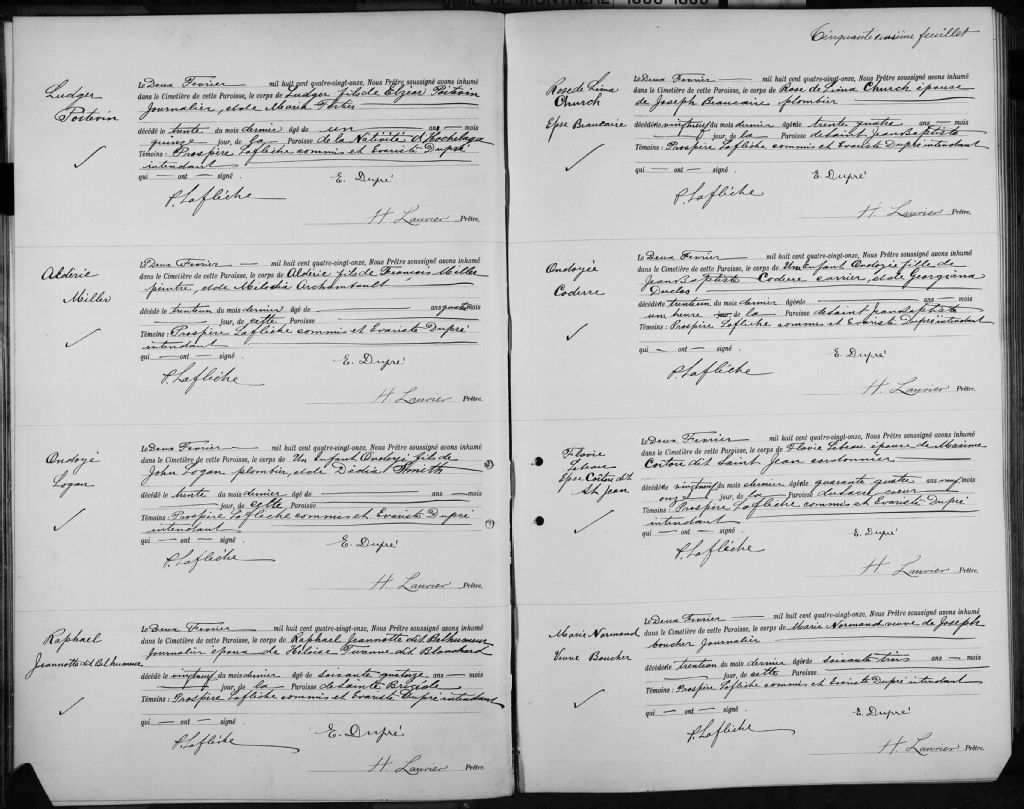 Ludger
Poitevin
Le Deux Fevrier mil huit cent quatre-vingt-onze, Nous Prêtre soussigné avons inhumé
dans le Cimetière de cette Paroisse, le corps de Ludger fils de Elzéar Poitevin
Journalier, et de Maria
décédé le trente du mois dernier âgé de un ans mois
quinze jour, de la Paroisse de la Nativité d'Hochelaga
Témoins : Prospère Laflèche commis et Evariste Dupré
intendant
qui — ont — signé . E. Dupré
P. Laflèche
H. Laurier Prêtre.
Aldéric
Miller
Le Deux Fevrier mil huit cent quatre-vingt-onze, Nous Prêtre soussigné avons inhumé
dans le Cimetière de cette Paroisse, le corps de Aldéric fils de Francois Miller
peintre, et de Mélodia Archambault
décédé le trenteun du mois dernier âgé de ans quatre mois
jour, de cette Paroisse
Témoins : Prospère Laflèche commis et Evariste Dupré
intendant
qui — ont — signé . E. Dupré
P. Laflèche
H. Laurier Prêtre.
Ondoyé
Logan
Le Deux Fevrier mil huit cent quatre-vingt-onze, Nous Prêtre soussigné avons inhumé
dans le Cimetière de cette Paroisse, le corps de Un Enfant Ondoyé fils de
John Logan plombier, et de Délia Smith
décédé le trente du mois dernier âgé de ans mois
jour, de cette Paroisse
Témoins : Prospère Laflèche commis et Evariste Dupré
intendant
qui — ont — signé . E. Dupré
P. Laflèche
H. Laurier Prêtre.
Raphael
Jeannotte dit Belhumeur
Le Deux Fevrier mil huit cent quatre-vingt-onze, Nous Prêtre soussigné avons inhumé
dans le Cimetière de cette Paroisse, le corps de Raphael Jeannotte dit Belhumeur
Journalier époux de Héloise Turenne dit Blanchard
décédé le vingtneuf du mois dernier âgé de soixante quatorze ans mois
jour, de la Paroisse de Sainte Brigide
Témoins : Prospère Laflèche commis et Evariste Dupré intendant
qui — ont — signé . E. Dupré
P. Laflèche
H. Laurier Prêtre.
feuillet
Rose de Lima
Church
Epse Beaucaire
Le Deux Fevrier mil huit cent quatre-vingt-onze, Nous Prêtre soussigné avons inhumé
dans le Cimetière de cette Paroisse, le corps de Rose de Lima Church épouse
de Joseph Beaucaire plombier
décédé le vingtneuf du mois dernier âgé de trente quatre ans mois
jour, de la Paroisse de saint Jean Baptiste
Témoins : Prospère Laflèche commis et Evariste Dupré intendant
qui — ont — signé . E. Dupré
P. Laflèche
H. Laurier Prêtre.
Ondoyée
Coderre
Le Deux Fevrier mil huit cent quatre-vingt-onze, Nous Prêtre soussigné avons inhumé
dans le Cimetière de cette Paroisse, le corps de Un Enfant Ondoyée fille de
Jean Baptiste Coderre carrier, et de Georgiana
Duclos
décédé le trenteun du mois dernier âgé de ans mois
une heure jour, de la Paroisse de saint Jean Baptiste
Témoins : Prospère Laflèche commis et Evariste Dupré intendant
qui — ont — signé . E. Dupré
P. Laflèche
H. Laurier Prêtre.
Flavie
Lebeau
Epse Coitou dit
St Jean
Le Deux Fevrier mil huit cent quatre-vingt-onze, Nous Prêtre soussigné avons inhumé
dans le Cimetière de cette Paroisse, le corps de Flavie Lebeau épouse de Maxime
Coitou dit Saint Jean cordonnier
décédé le vingtneuf du mois dernier âgé de quarante quatre ans neuf mois
onze jour, de la Paroisse du sacré coeur
Témoins : Prospère Laflèche commis et Evariste Dupré
intendant
qui — ont — signé . E. Dupré
P. Laflèche
H. Laurier Prêtre.
Marie Normand
Veuve Boucher
Le Deux Fevrier mil huit cent quatre-vingt-onze, Nous Prêtre soussigné avons inhumé
dans le Cimetière de cette Paroisse, le corps de Marie Normand veuve de Joseph
boucher Journalier
décédé le trenteun du mois dernier âgé de soixante trois ans mois
jour, de cette Paroisse
Témoins : Prospère Laflèche commis et Evariste Dupré intendant
qui — ont — signé . E. Dupré
P. Laflèche
H. Laurier Prêtre.